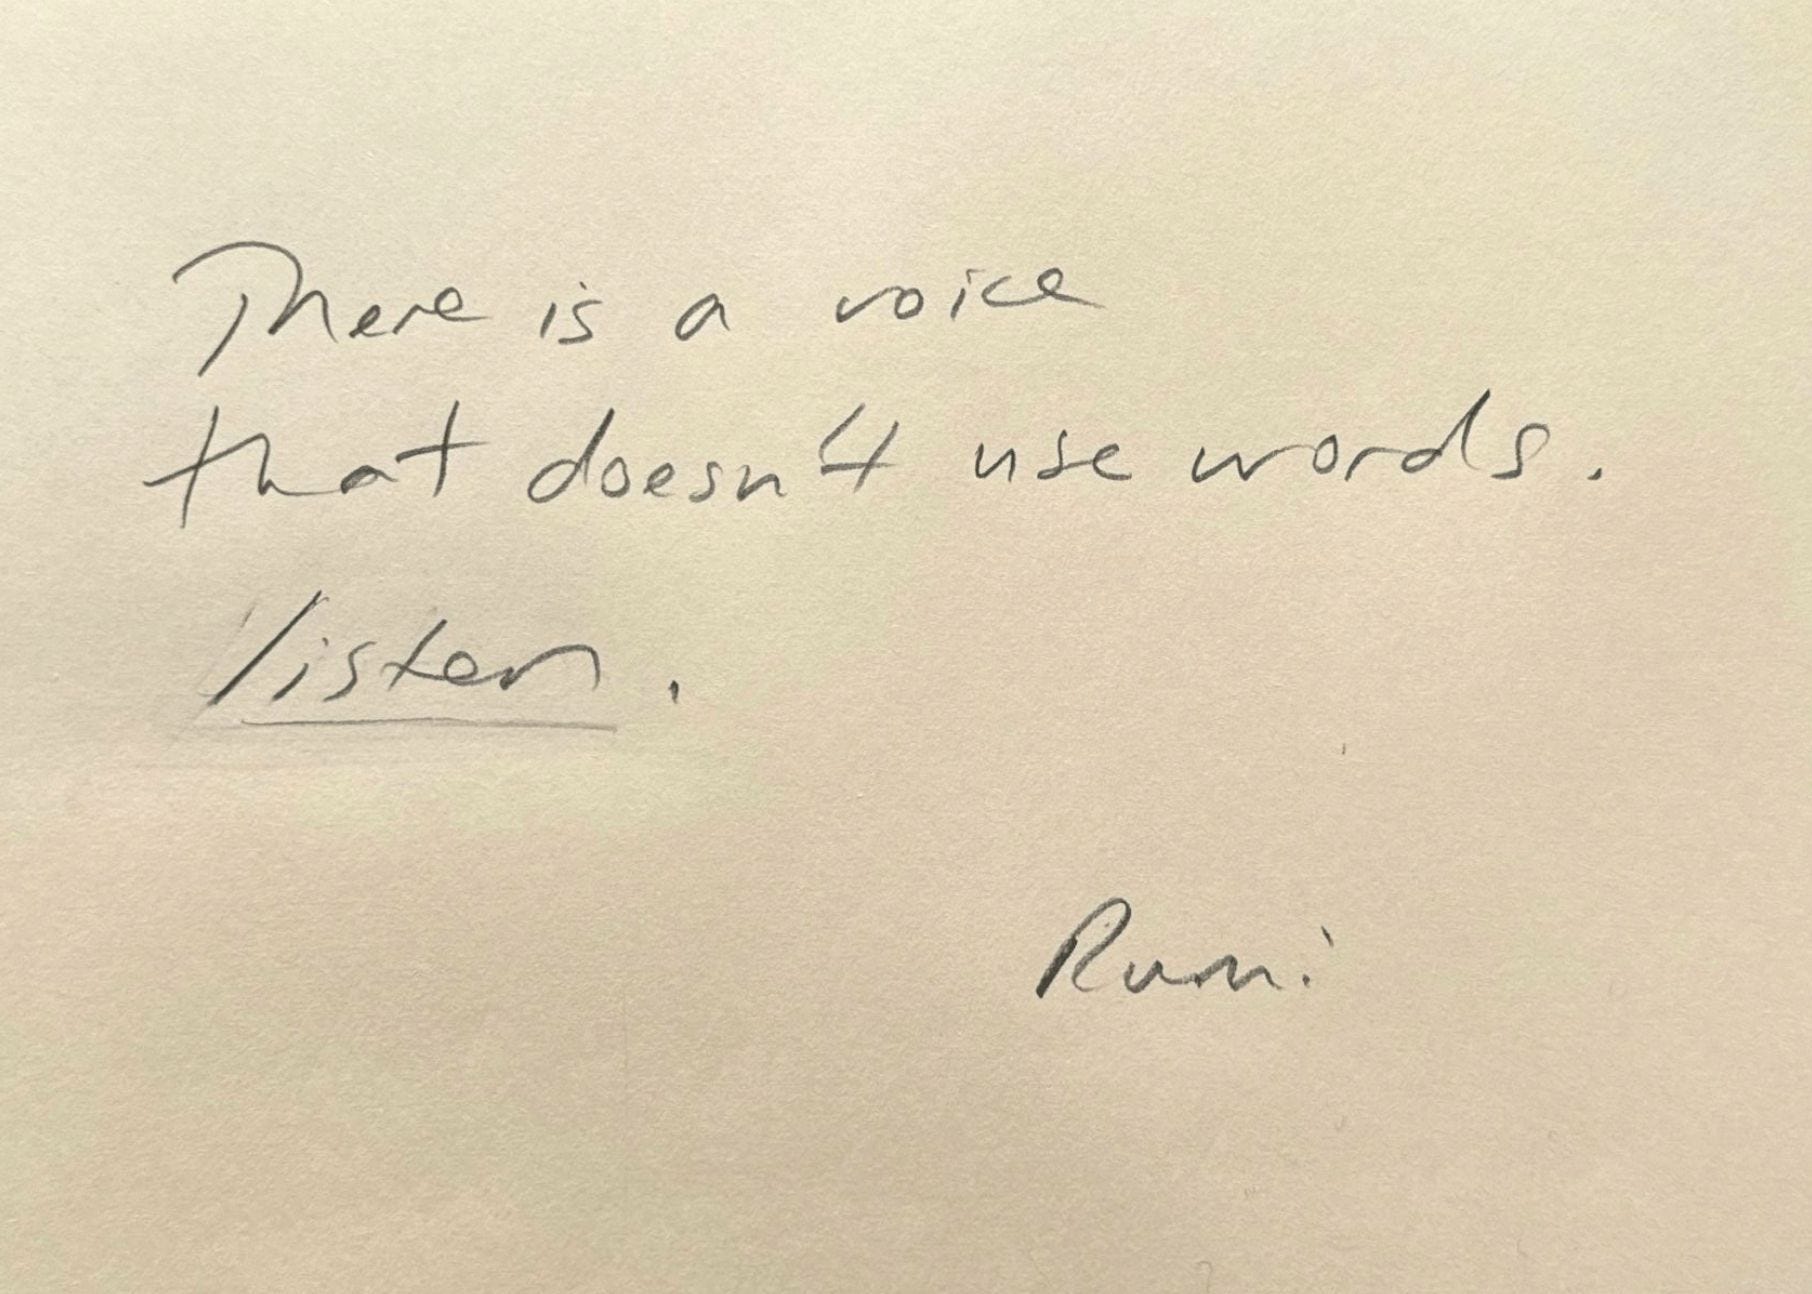 There is a voice
that doesn't use words.
listen.
Rumi